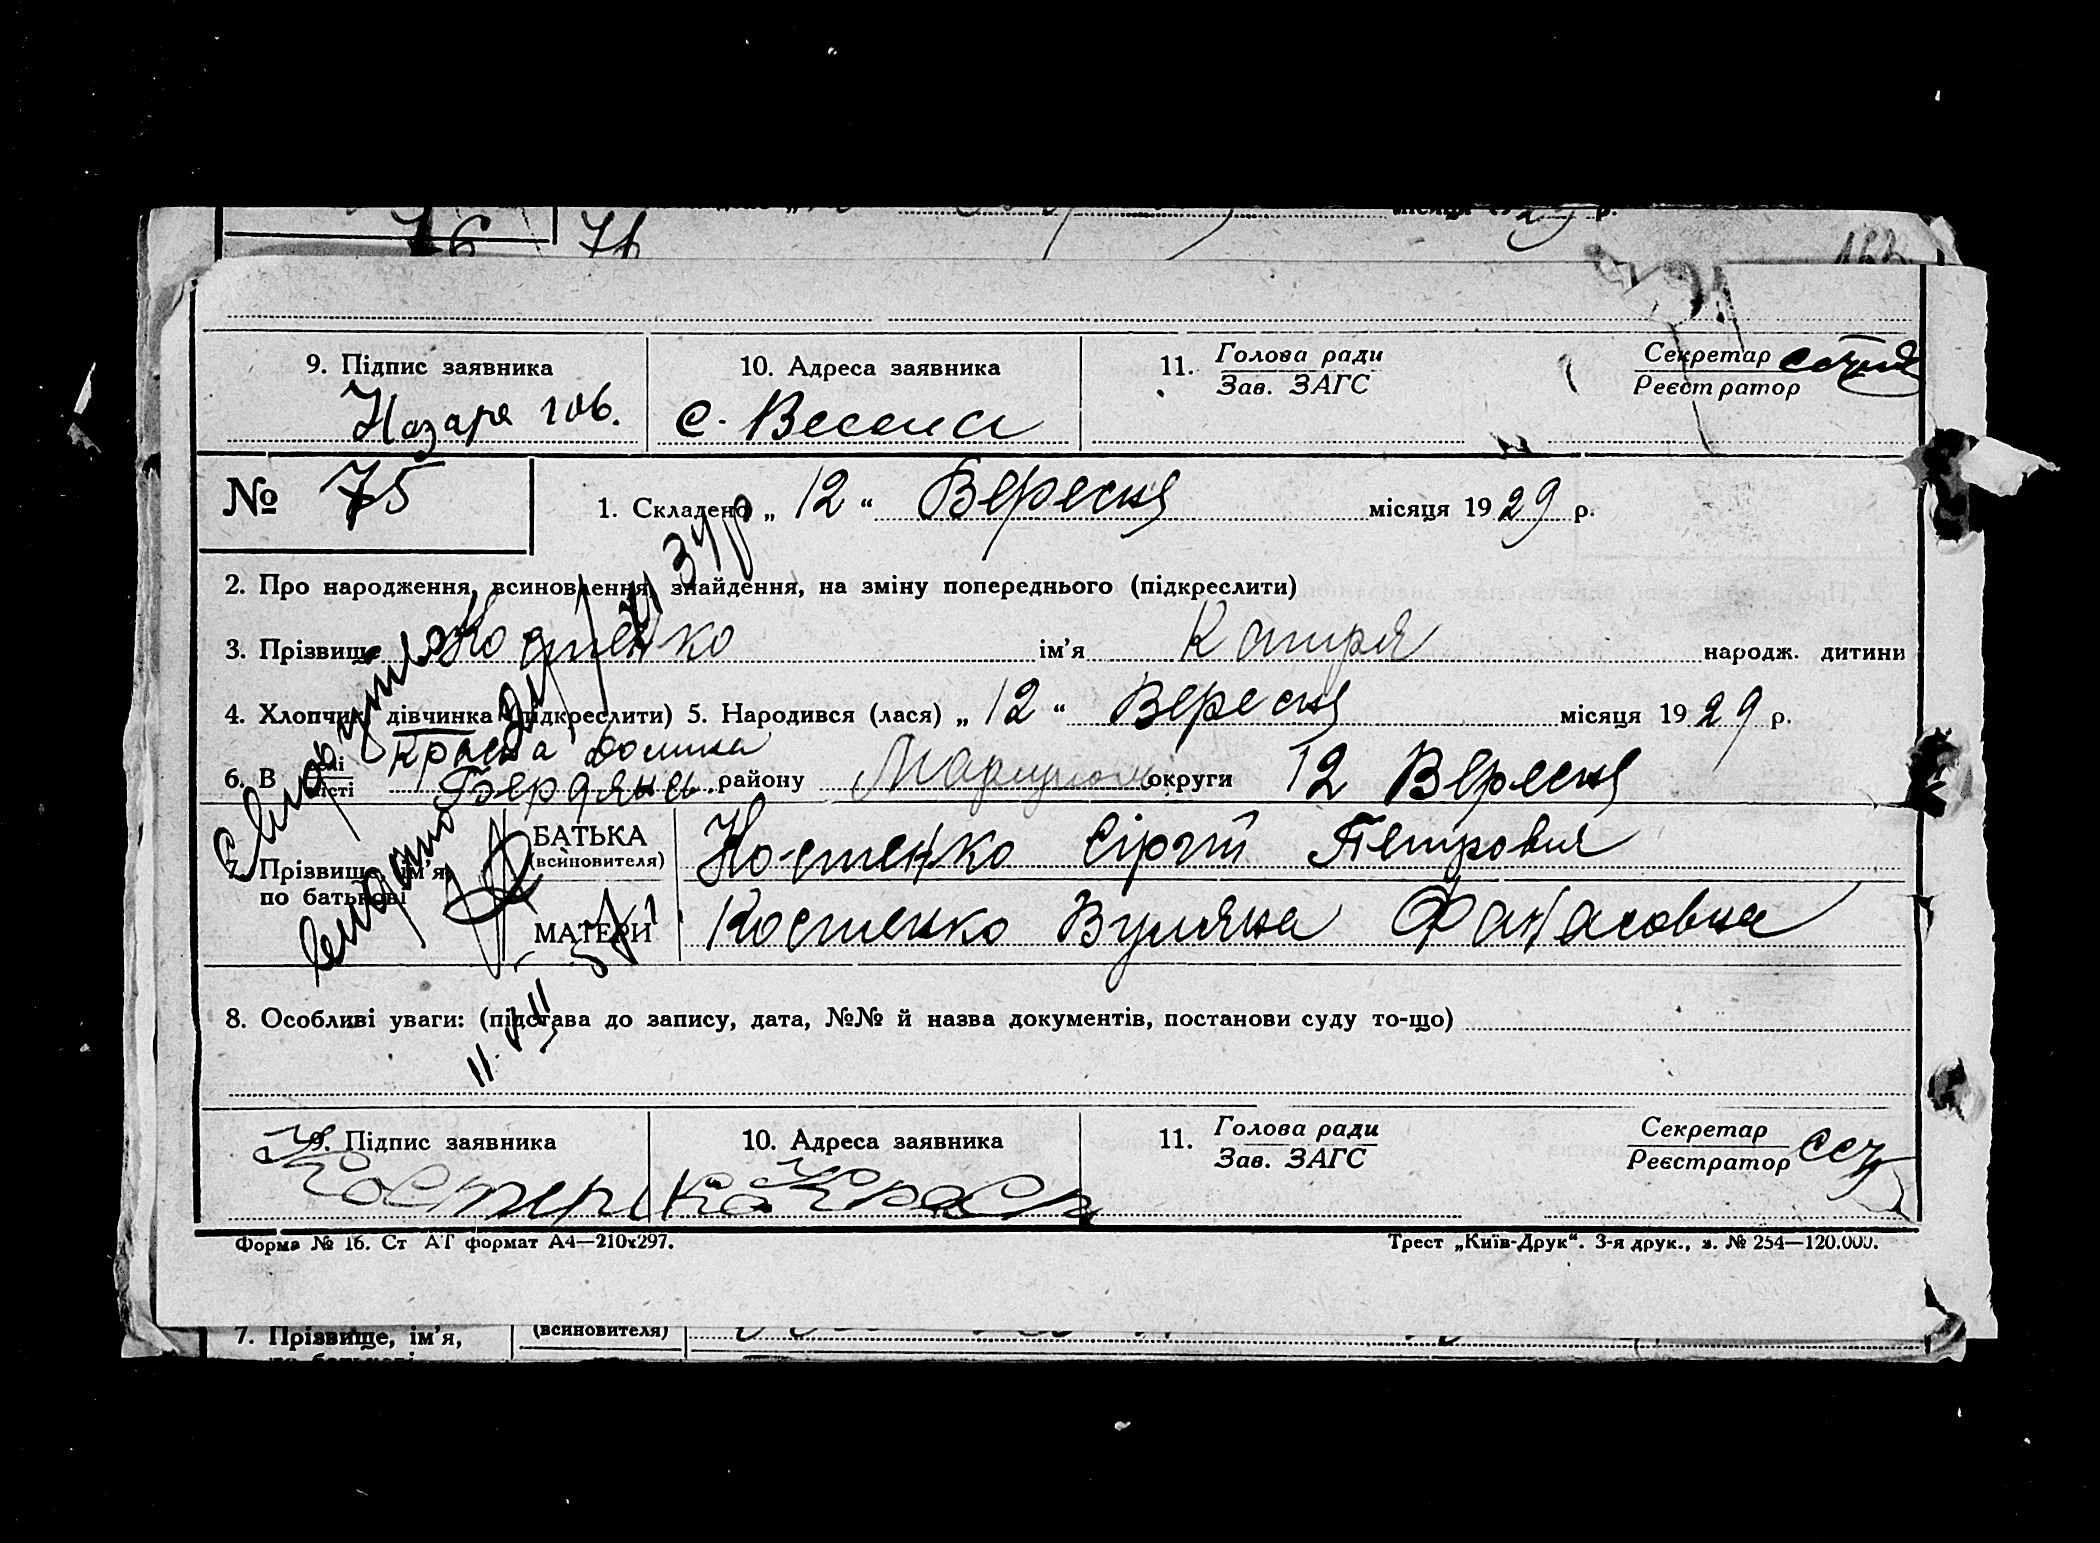 76 76
місяця 1929 р.
9. Підпис заявника 10. Адреса заявника 11. Голова ради Секретар
Зав. ЗАГС Реєстратор
с. Весела
№ 75 1. Складено „ 12 “ Вересня місяця 1929 р.
2. Про народження, всиновлення, знайдення, на зміну попереднього (підкреслити)
3. Прізвище Костенко ім'я Катря народж. дитини
4. Хлопчик, дівчинка (підкреслити) 5. Народився (лася) „ 12 “ Вересня місяця 1929 р.
Красна Долина
6. В селі Бердянськ. району округи 12 Вересня
місті
7. Прізвище, ім'я, по батькові
БАТЬКА (всиновителя) Костенко Сіргій Петровия
МАТЕРИ Костенко Вуляна Фанасовна
8. Особливі уваги: (підстава до запису, дата, №№ й назва документів, постанови суду то-що)
9. Підпис заявника 10. Адреса заявника 11. Голова ради Секретар
Зав. ЗАГС Реєстратор
Костенко
Форма № 16. Ст АТ формат А4—210х297. Трест „Київ-Друк“. 3-я друк., з. № 254—120.000.
7. Прізвище, ім'я, (всиновителя)
по батькові